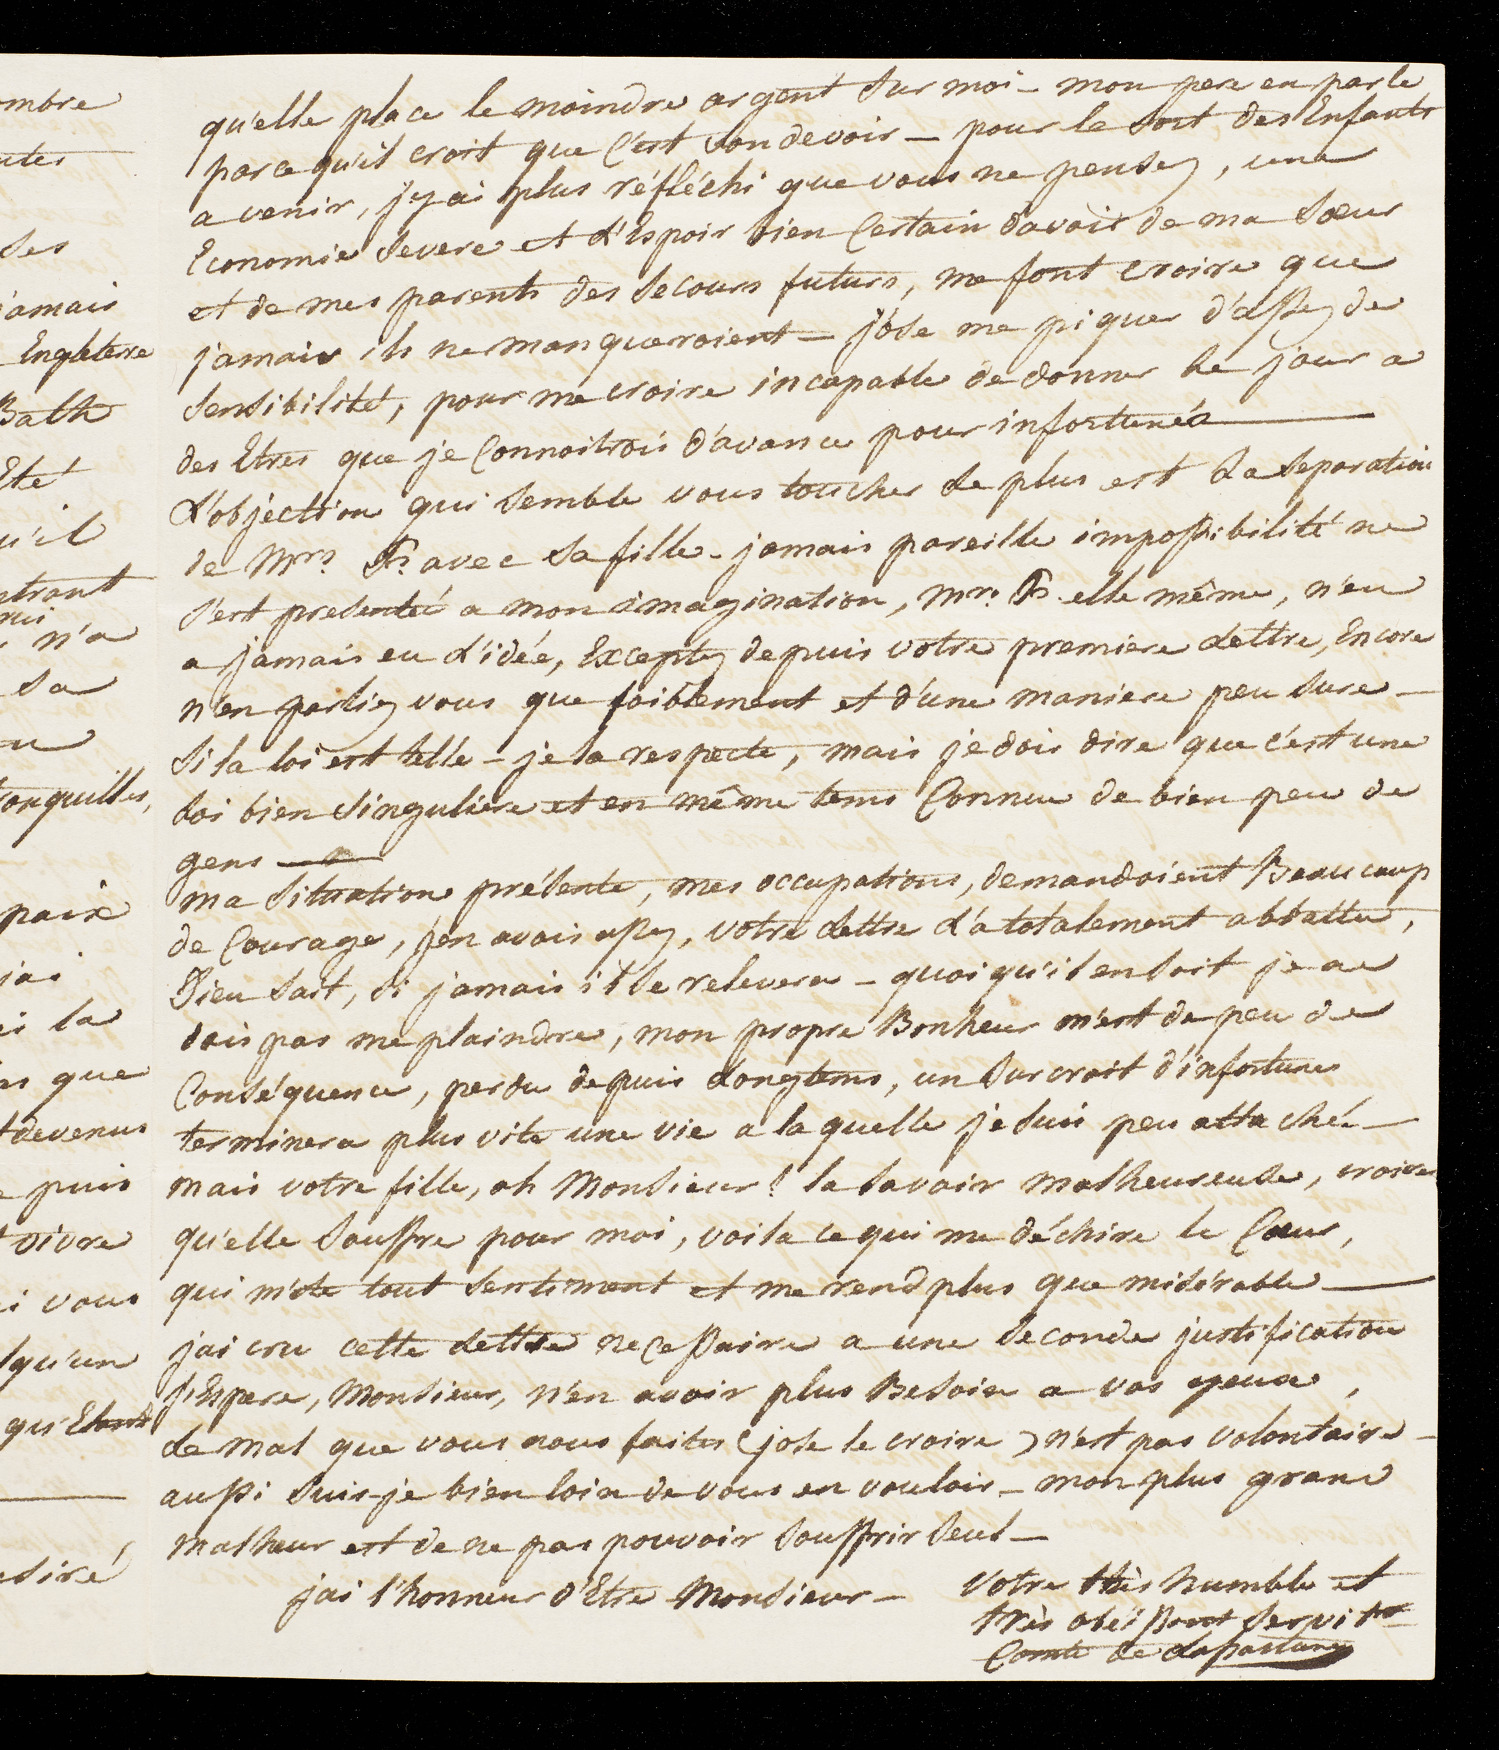 ombre
utes
ses
jamais
Engleterre
Bath
Eté
u'il
ntrant
n'a
sa
tranquilles,
paix
jai
la
que
devenus
puis
vivre
vous
qu'un
qu'Etant
esiré
qu'elle place le moindre argent sur moi - mon pere en parle
parcequ'il croit que C'est son devoir - pour le sort des Enfants
a venir, j'y ai plus réfléchi que vous ne pensez, une
Economie severe et L'Espoir bien Certain d'avoir de ma Sœur
et de mes parents des secours futurs, me font croire que
jamais ils ne manqueroient - j'ose me piquer d'assez de
sensibilité, pour me croire incapable de donner le jour a
des Etres que je Connoitrois d'avance pour infortunés
L'objection qui semble vous toucher le plus est La separation
de Mrs. Fs. avec sa fille - jamais pareille impossibilité ne
s'est presenteé a mon imagination, Mrs. Fs. elle même, n'en
a jamais eu L'idée, Exceptez depuis votre premiere Lettre, Encore
n'en parliez vous que foiblement et d'une maniere peu sure -
Si la loi est telle - je la respecte, mais je dois dire que c'est une
Loi bien singuliere et en même tems Connue de bien peu de
gens
ma situation présente, mes occupations, demandoient Beaucoup
de Courage, j'en avois assez, votre Lettre L'a totalement abbattu,
Dieu sait, si jamais il se relevera - quoiqu'il en soit je ne
dois pas me plaindre, mon propre Bonheur m'est de peu de
Conséquence, perdu depuis Longtems, un surcroit d'infortunes
terminera plus vite une vie a laquelle je suis peu attaché -
mais votre fille, oh Monsieur! la savoir malheureuse, croire
qu'elle souffre pour moi, voila ce qui me déchire le Cœur,
qui m'ote tout sentiment et me rend plus que misérable
jai cru cette Lettre necessaire a une seconde justification
j'Espere, Monsieur, n'en avoir plus Besoin a vos yeux,
Le mal que vous nous faites (jose le croire) n'est pas volontaire -
aussi suis-je bien loin de vous en vouloir - mon plus grand
malheur est de ne pas pouvoir souffrir seul -
jai l'honneur d'Etre Monsieur - Votre très humble et
très obéissant servitr
Comte de Lapasture